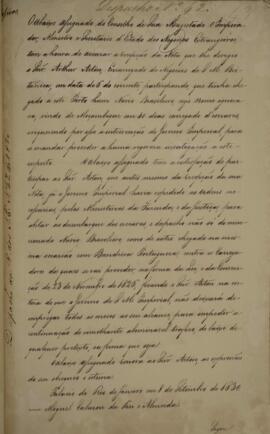 Despacho Nº 92
O abaixo assignado do Conselho de Sua Magestade o Imperador,
Ministro e Secretario d'Estado dos Negocios Estrangeiros
tem a honra de accusar a recepção da Nota que lhe dirigio
o Snr. Arthur Aston, Encarregado de Negocios de S. M. Bri-
tannica, em data de 6 do corrente participando que tinha che-
gado a este Porto hum Navio Brasileiro
vindo de Moçambique em dias carregado d'escravos,
Governo Imperial para
a mandar proceder a huma rigorosa investigação a este
respeito. O abaixo assignado tem a satisfação de par-
ticipar ao Snr. Aston, que antes mesmo da recepção da sua
Nota, já o Governo Imperial havia expedido as ordens ne-
cessarias pelos Ministerios da Fazenda, e da Justiça, para
obstar ao desembarque dos escravos e despacho não só do men-
cionado Navio Brasileiro, como de outro chegado na mes-
ma occasião com Bandeira Portugueza, contra os trans-
gressores
de quaes se vai proceder na forma da Lei, e da Conven-
ção de 23 de Novembro de 1826, ficando o Snr. Aston na cer-
teza de que o Governo de S. M. Imperial, não deixará de
empregar todos os meios ao seu alcance para empedir a
continuação de semelhante abominavel trafico, debaixo de
qualquer pretexto, ou forma que seja.
O abaixo assignado renova ao Snr. Aston as expressões
de sua obsequio e estima.
Palacio do Rio de Janeiro em 8 de Setembro de 1830
— Miguel Calmon du Pin e Almeida.